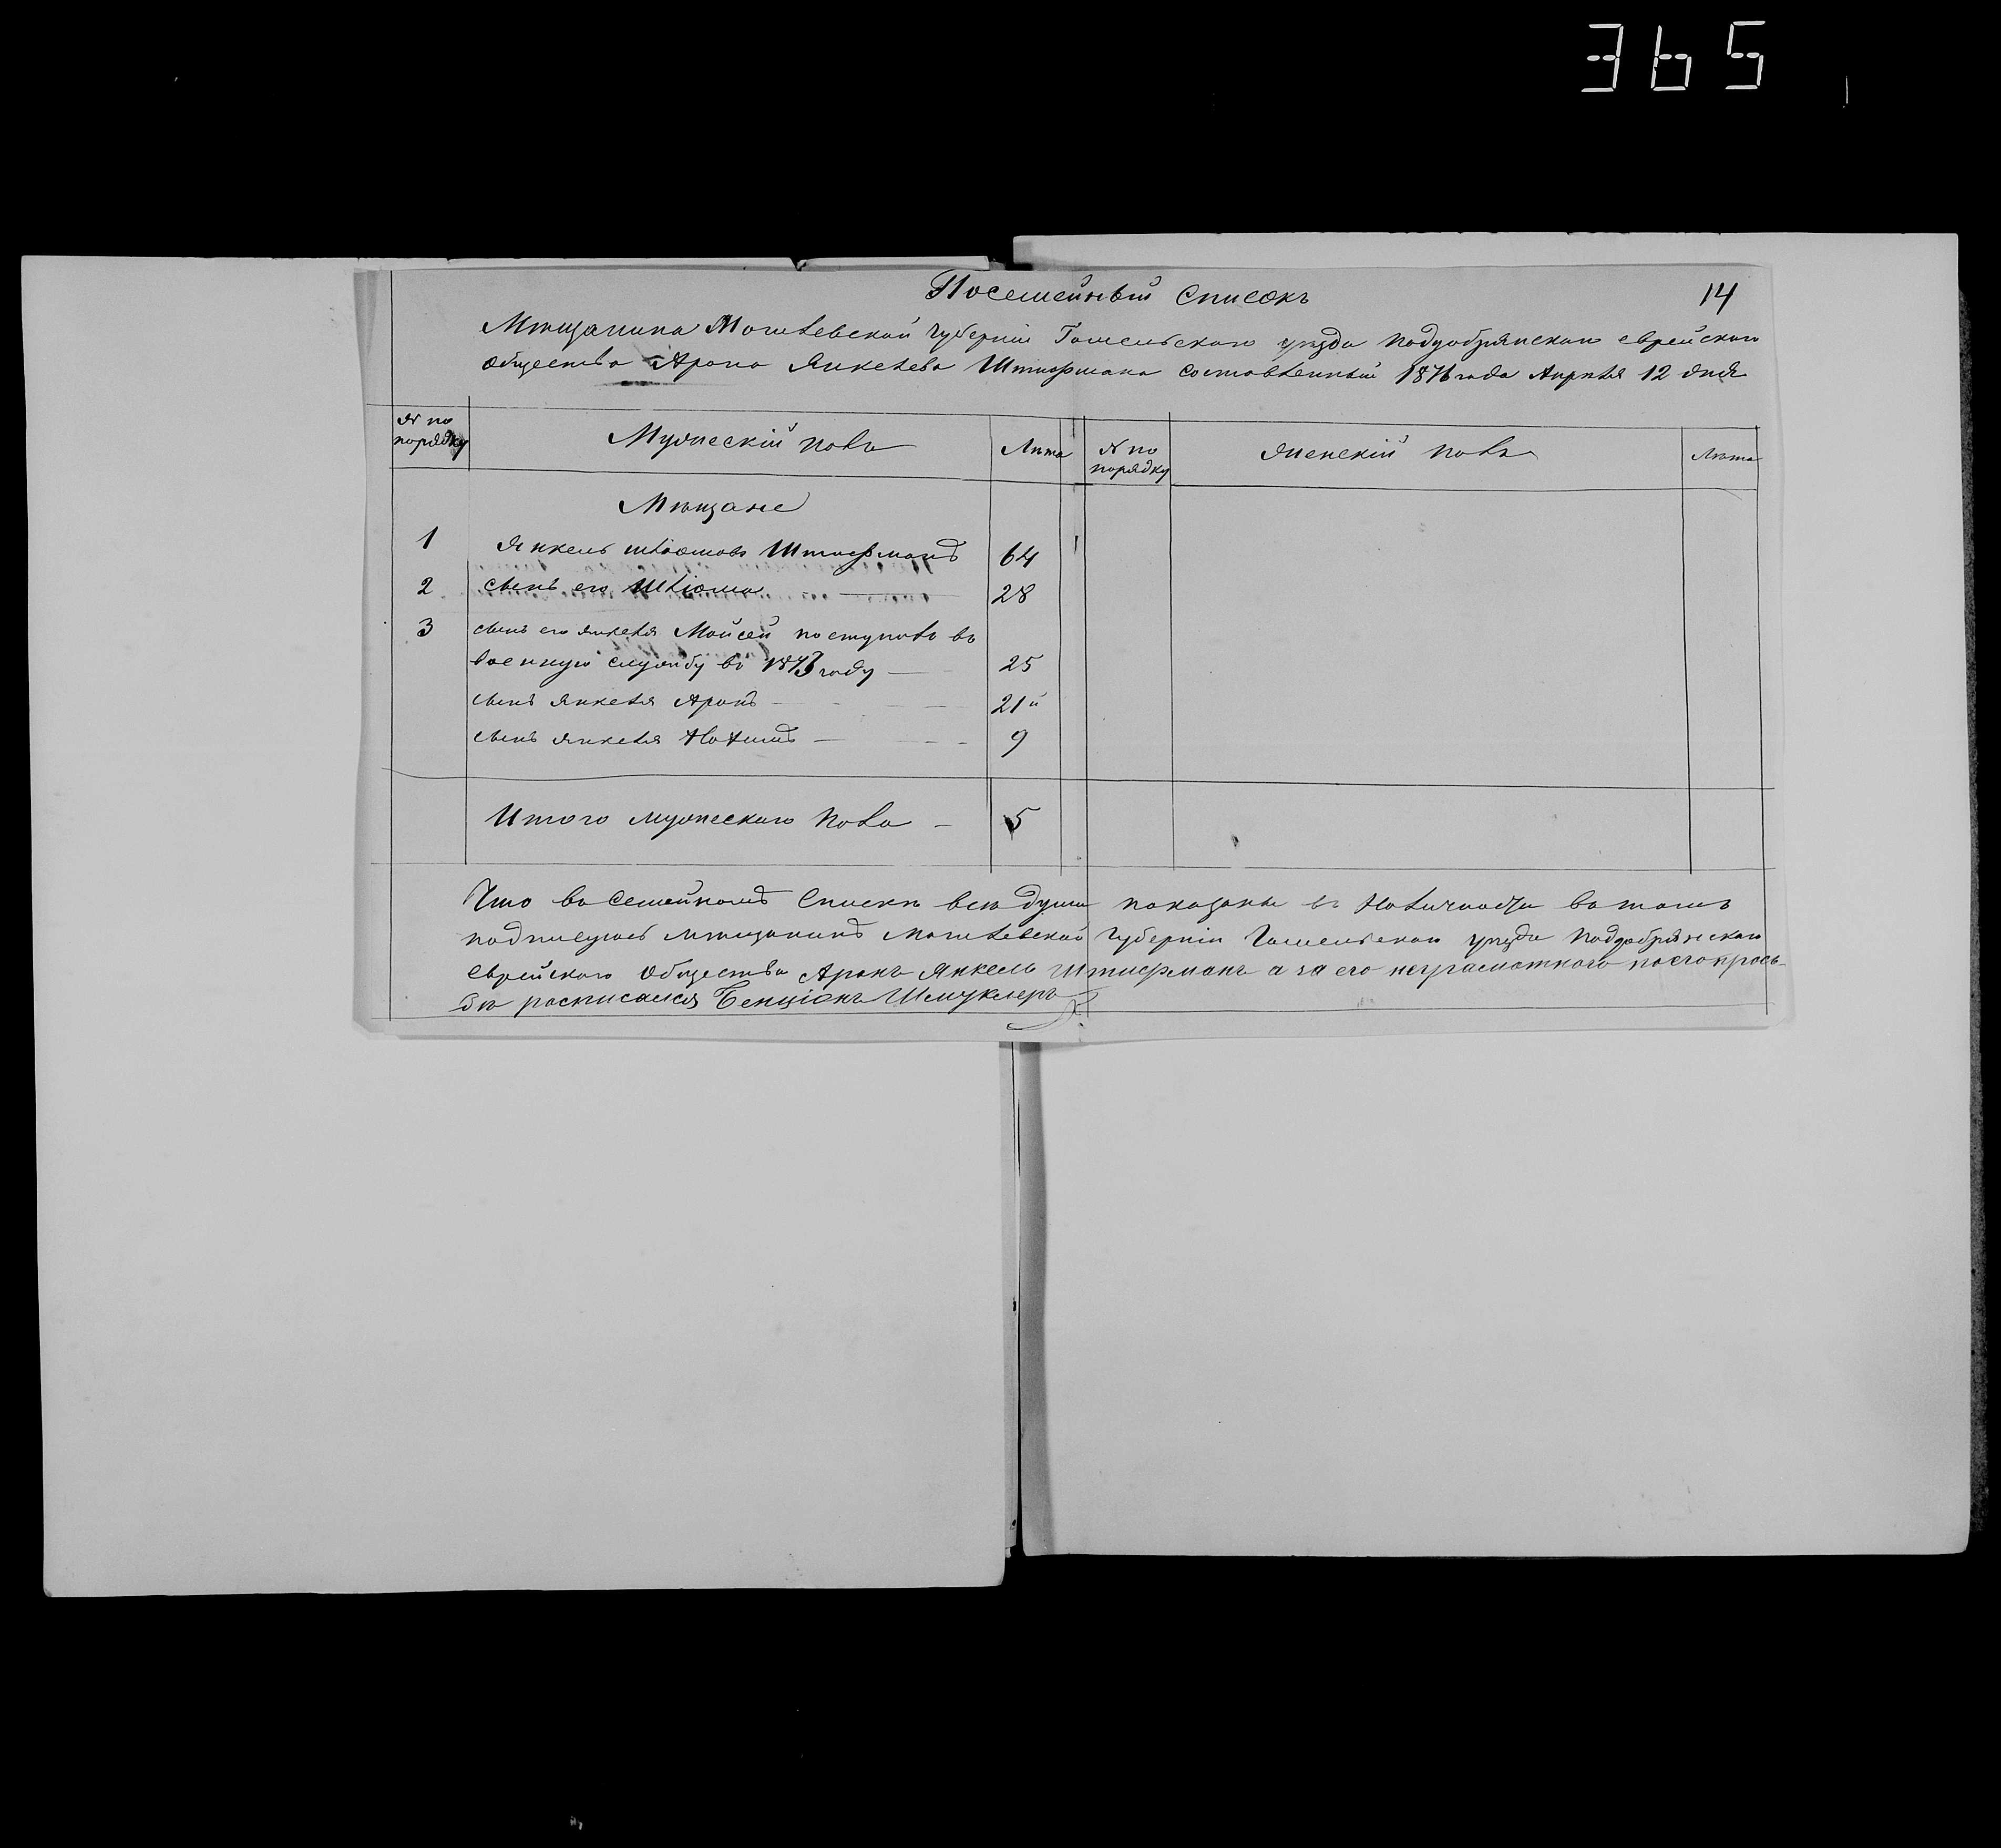 365
14
Посемейный Списокъ
Мѣщанина Могилевской Губерніи Гомельскаго уѣзда Поддобрянскаго еврейскаго
общества Арона Янкелева Штифмана составленный 1876 года Апрѣля 12 дня
№ по порядку
Мужескій полъ
Лѣта
№ по порядку
Женскій полъ
Лѣта
Мѣщане
1 Янкель Шліомовъ Штифманъ 64
2 сынъ его Шліома 28
3 сынъ его Янкеля Мойсей поступилъ въ
военную службу въ 1873 году 25
сынъ Янкеля Аронъ 21
сынъ Янкеля 9
Итого мужескаго пола 5
Что въ Семейномъ Спискѣ всѣ души показаны въ Наличности въ томъ
подписуюсь мѣщанинъ Могилевской Губерніи Гомельскаго уѣзда Поддобрянскаго
Еврейскаго Общества Аронъ Янкель Штифманъ а за его неграмотного по его прось-
бѣ росписался Бенціонъ Шмуклеръ